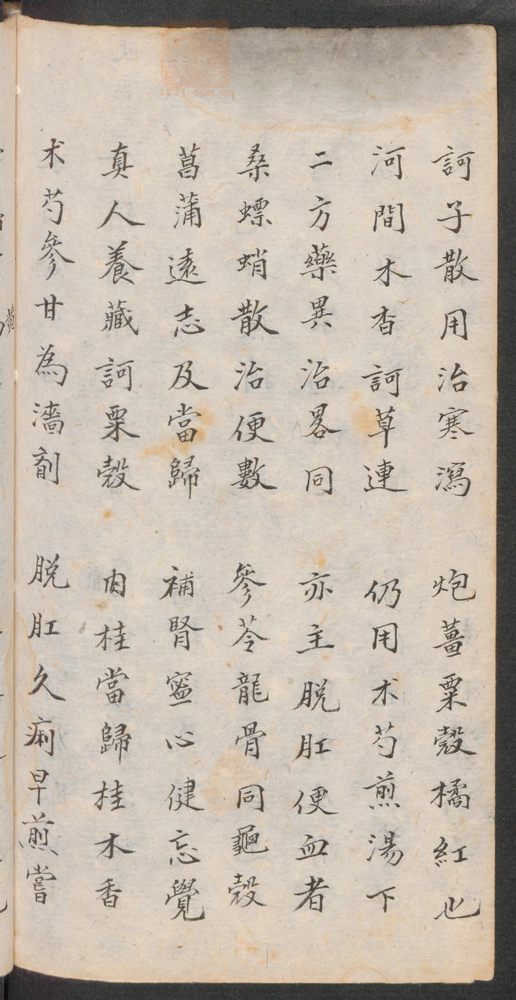 訶子散用治寒瀉　炮薑粟殼橘紅也
河間木香訶草連　仍用术芍煎湯下
二方藥異治畧同　亦主脱肛便血者
桑螵蛸散治便數　參苓龍骨同龜殼
菖蒲遠志及當歸　補腎寧心健忘覺
真人養藏訶粟殼　肉桂當歸桂木香
术芍參甘為濇劑　脱肛久痢早煎嘗